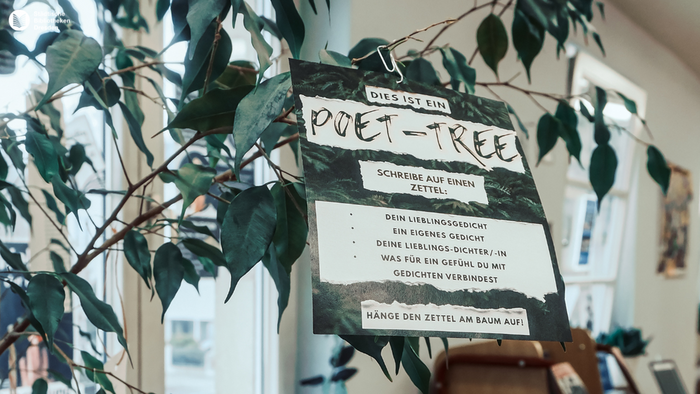 DIES IST EIN
POET-TREE
SCHREIBE AUF EINEN
ZETTEL:
• DEIN LIEBLINGSGEDICHT
• EIN EIGENES GEDICHT
• DEINE LIEBLINGS-DICHTER/-IN
• WAS FÜR EIN GEFÜHL DU MIT
GEDICHTEN VERBINDEST
HÄNGE DEN ZETTEL AM BAUM AUF!